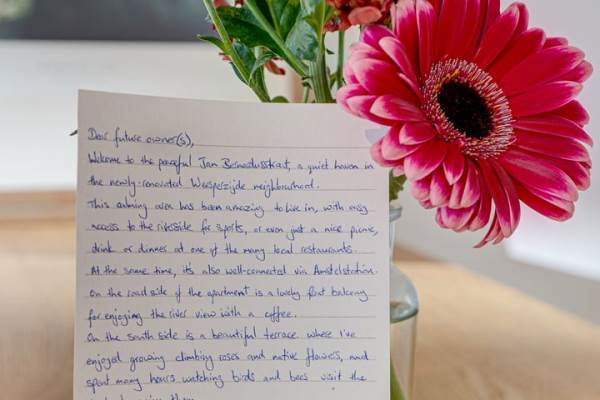 Dear future owner(s),
Welcome to the peaceful Jan Bernardusstraat, a quiet haven in
the newly-renovated Weesperzijde neighbourhood.
This calming area has been amazing to live in, with easy
access to the riverside for sports, or even just a nice picnic,
drink or dinner at one of the many local restaurants.
At the same time, it's also well-connected via Amstelstation.
On the road side of the apartment is a lovely front balcony
for enjoying the river view with a coffee.
On the south side is a beautiful terrace where I've
enjoyed growing climbing roses and native flowers, and
spent many hours watching birds and bees visit the